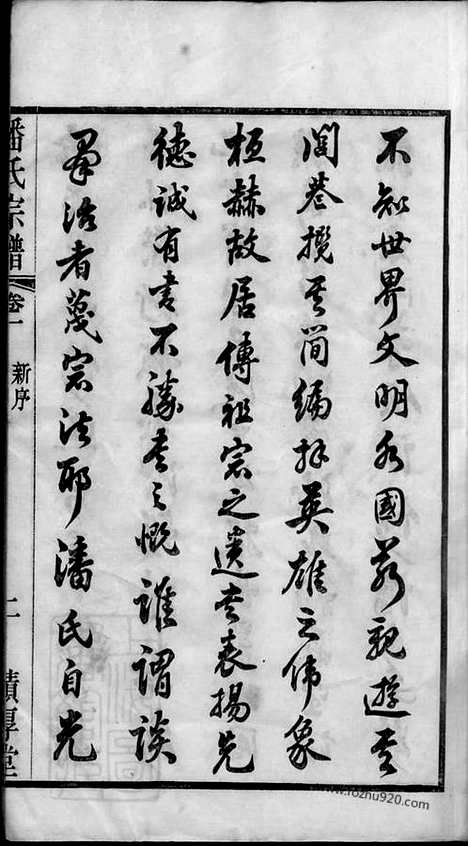 不知世界文明各國前親遊其
閭巷攬其简編拜英雄之偉象
桓赫故居傳祖宗之遺書表揚先
德誠有書不勝書之慨誰謂談
羣治者蔑宗法耶潘氏自先
潘氏宗譜
卷一
新序
二
積厚堂
www.fozhu920.com